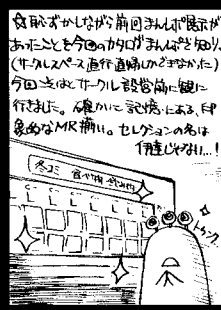 ☆恥ずかしながら前回まんレポ展示が
あったことを今回のカタログまんレポで知り、
(サークルスペース直行直帰しかできなかった)
今回こそはとサークル設営前に観に
行きました。確かに記憶にある、印
象的なMR揃い。セレクションの名は
伊達じゃない…!
冬コミ